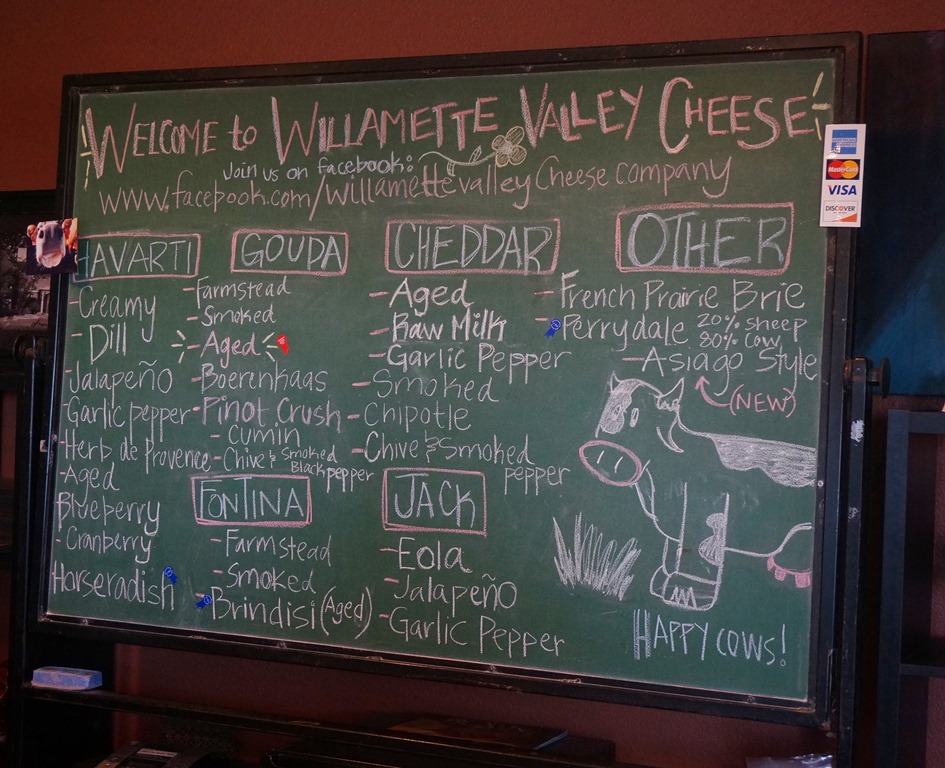 WELCOME to WILLAMETTE VALLEY CHEESE
Join us on facebook:
www.facebook.com/willamettevalleyCheese company
HAVARTI
-Creamy
-Dill
Jalapeño
Garlic pepper
Herb de Provence
-Aged
Blueberry
-Cranberry
Horseradish
GOUDA
-Farmstead
-Smoked
-Aged
-Boerenkaas
-Pinot Crush
-Cumin
-Chive & Smoked
Black pepper
FONTINA
-Farmstead
-Smoked
-Brindisi (Aged)
CHEDDAR
-Aged
-Raw Milk
-Garlic Pepper
-Smoked
-Chipotle
-Chive & Smoked
pepper
JACK
-Eola
-Jalapeño
-Garlic Pepper
OTHER
-French Prairie Brie
-Perrydale 20% sheep
80% cow
-Asiago Style
(NEW)
HAPPY COWS!
AMERICAN EXPRESS
MasterCard
VISA
DISCOVER